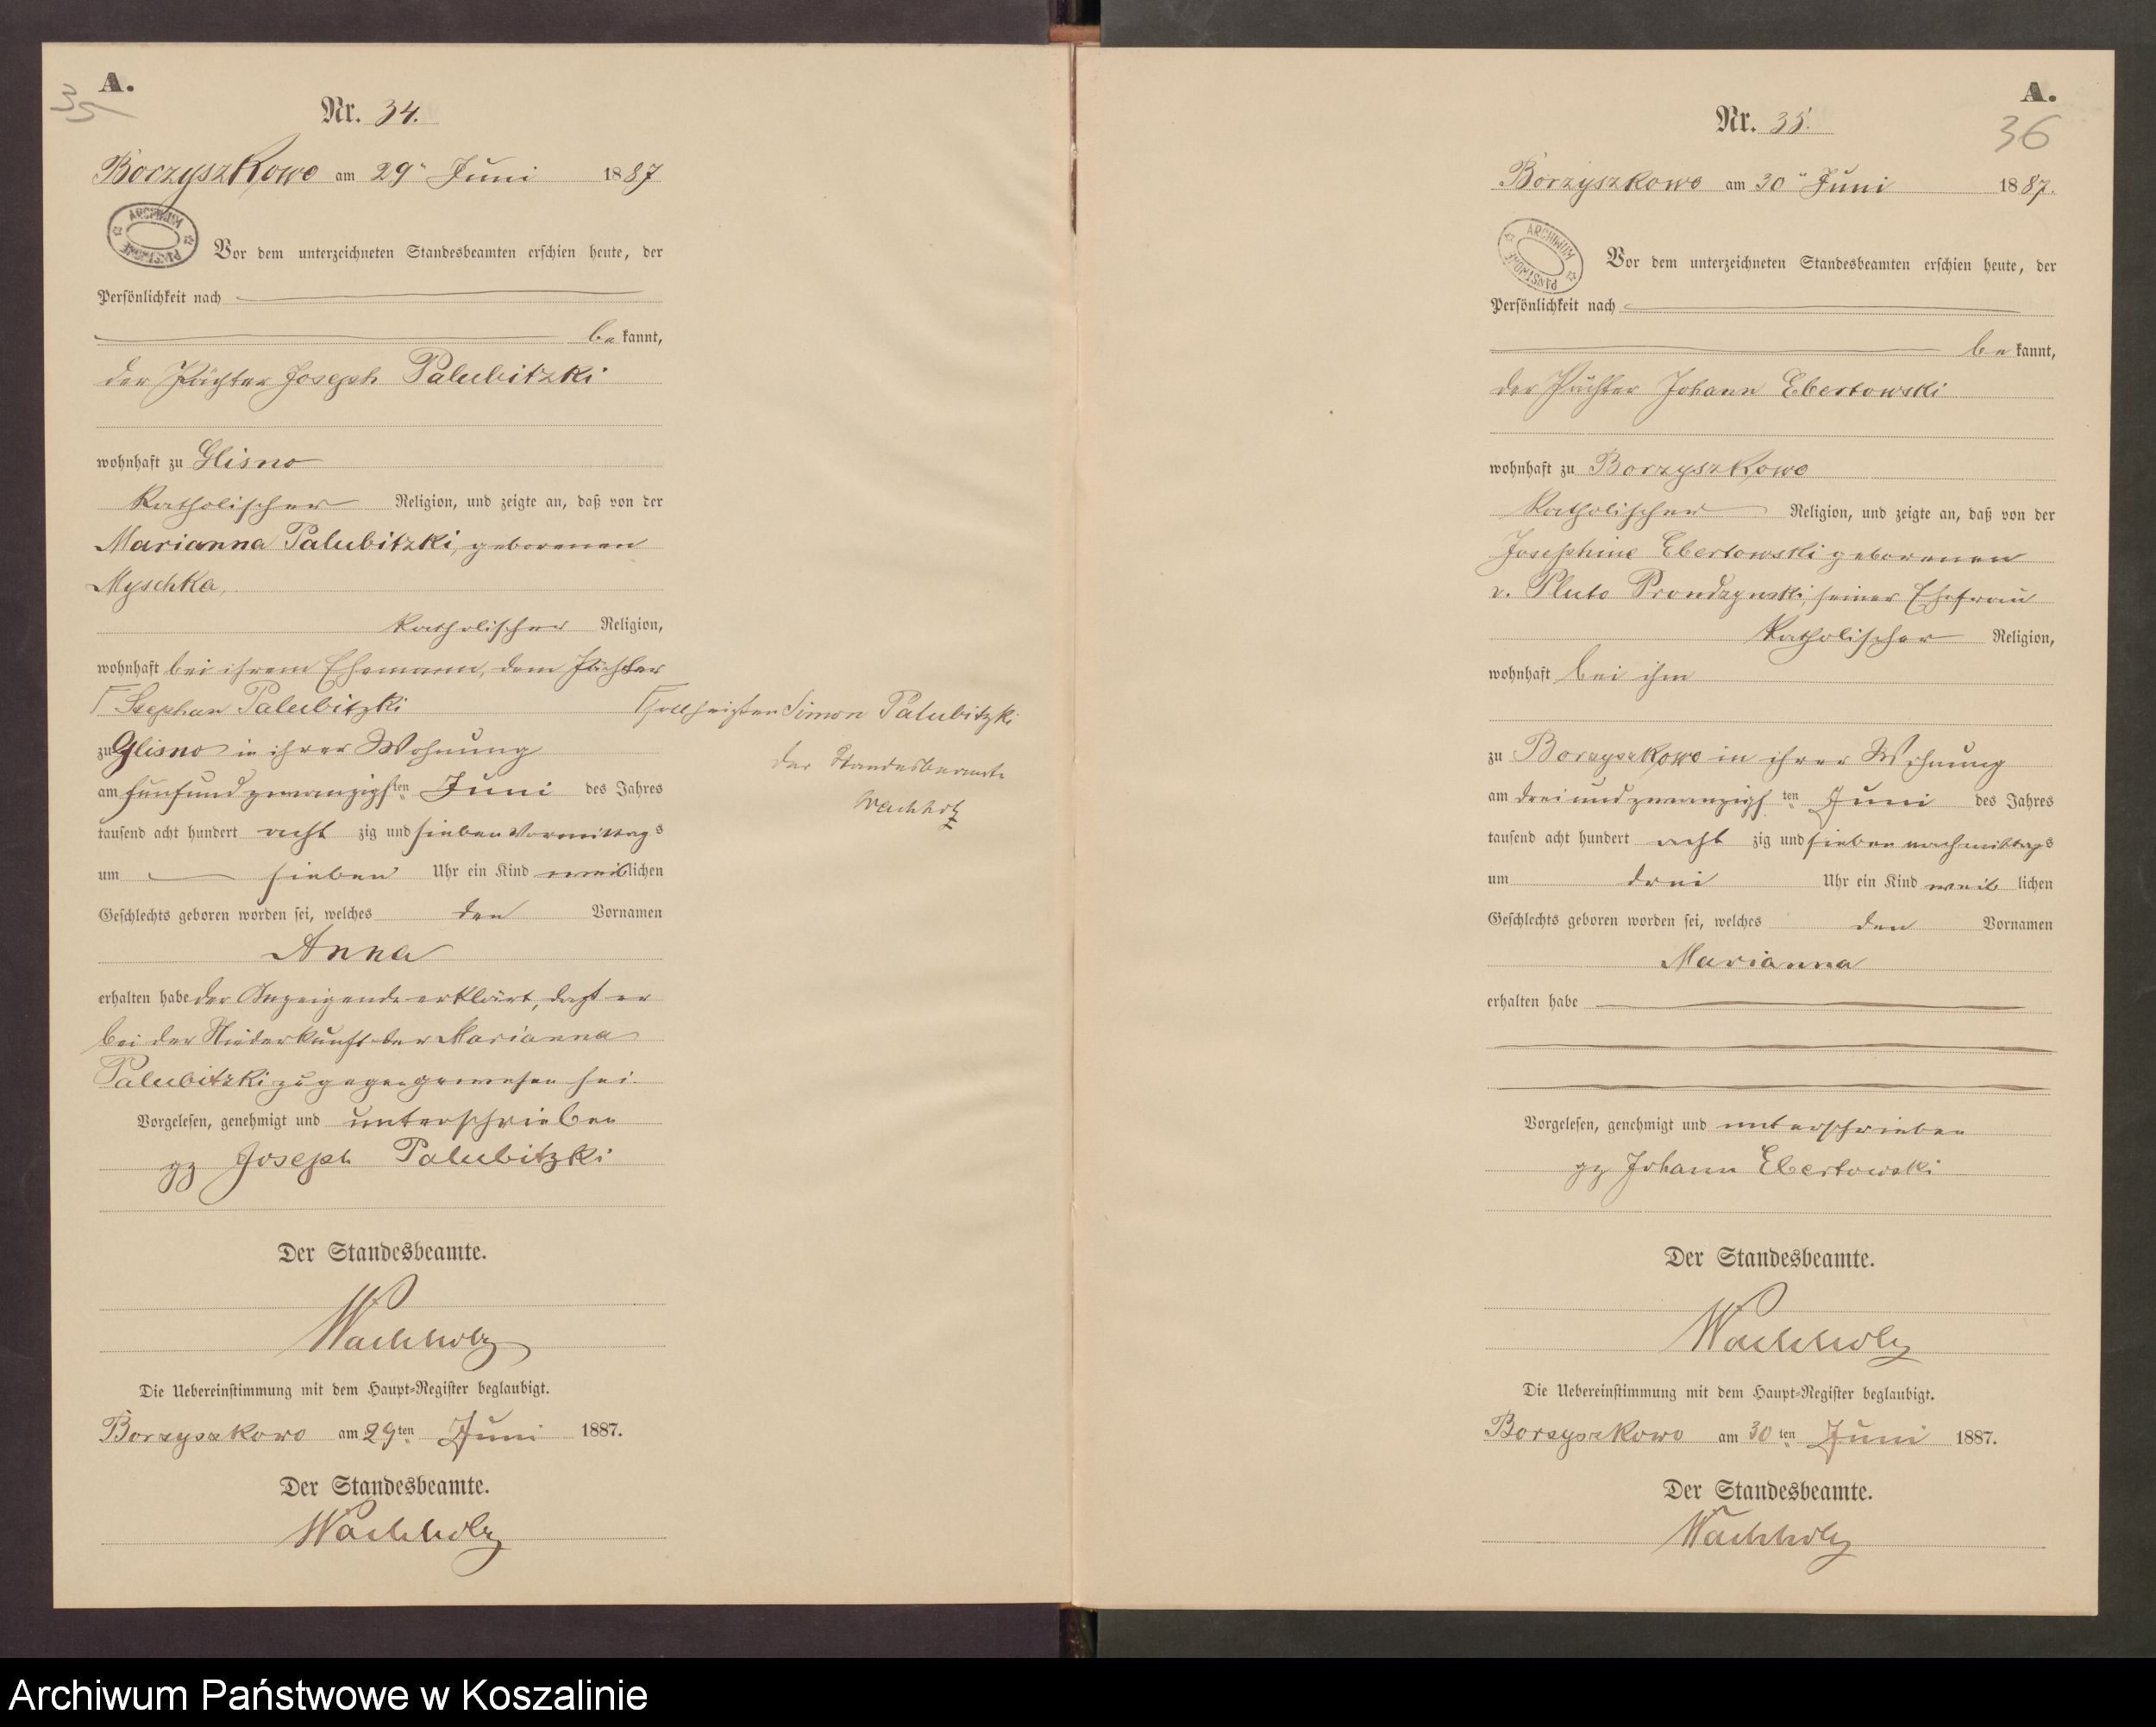 A.
35
Nr. 34.
Borzyszkowo am 29ⁿ Juni 1887
ARCHIWUM PAŃSTWOWE
Vor dem unterzeichneten Standesbeamten erschien heute, der
Persönlichkeit nach
be kannt,
der Pächter Joseph Palubitzki
wohnhaft zu Glisno
katholischer Religion, und zeigte an, daß von der
Marianna Palubitzki, geborenen
Myschka,
katholischer Religion,
wohnhaft bei ihrem Ehemann, dem Pächter
Γ Stephan Palubitzki
zu Glisno in ihrer Wohnung
am fünfundzwanzigsten Juni des Jahres
tausend acht hundert acht zig und sieben Vormittags
um sieben Uhr ein Kind weiblichen
Geschlechts geboren worden sei, welches den Vornamen
Anna
erhalten habe der Anzeigende erklärt, daß er
bei der Niederkunft der Marianna
Palubitzki zugegen gewesen sei.
Vorgelesen, genehmigt und unterschrieben
gz Joseph Palubitzki
Der Standesbeamte.
Wachholz
Die Uebereinstimmung mit dem Haupt-Register beglaubigt.
Borzyszkowo am 29ten Juni 1887.
Der Standesbeamte.
Wachholz
Γ soll heißen Simon Palubitzki
der Standesbeamte
Wachholz
A.
36
Nr. 35.
Borzyszkowo am 30ⁿ Juni 1887.
ARCHIWUM PAŃSTWOWE
Vor dem unterzeichneten Standesbeamten erschien heute, der
Persönlichkeit nach
be kannt,
der Pächter Johann Ebertowski
wohnhaft zu Borzyszkowo
katholischer Religion, und zeigte an, daß von der
Josephine Ebertowski geborenen
v. Pluto Prondzynski, seiner Ehefrau
katholischer Religion,
wohnhaft bei ihm
zu Borzyszkowo in ihrer Wohnung
am dreiundzwanzigsten Juni des Jahres
tausend acht hundert acht zig und sieben nachmittags
um drei Uhr ein Kind weib lichen
Geschlechts geboren worden sei, welches den Vornamen
Marianna
erhalten habe
Vorgelesen, genehmigt und unterschrieben
gz Johann Ebertowski
Der Standesbeamte.
Wachholz
Die Uebereinstimmung mit dem Haupt-Register beglaubigt.
Borzyszkowo am 30 ten Juni 1887.
Der Standesbeamte.
Wachholz
Archiwum Państwowe w Koszalinie